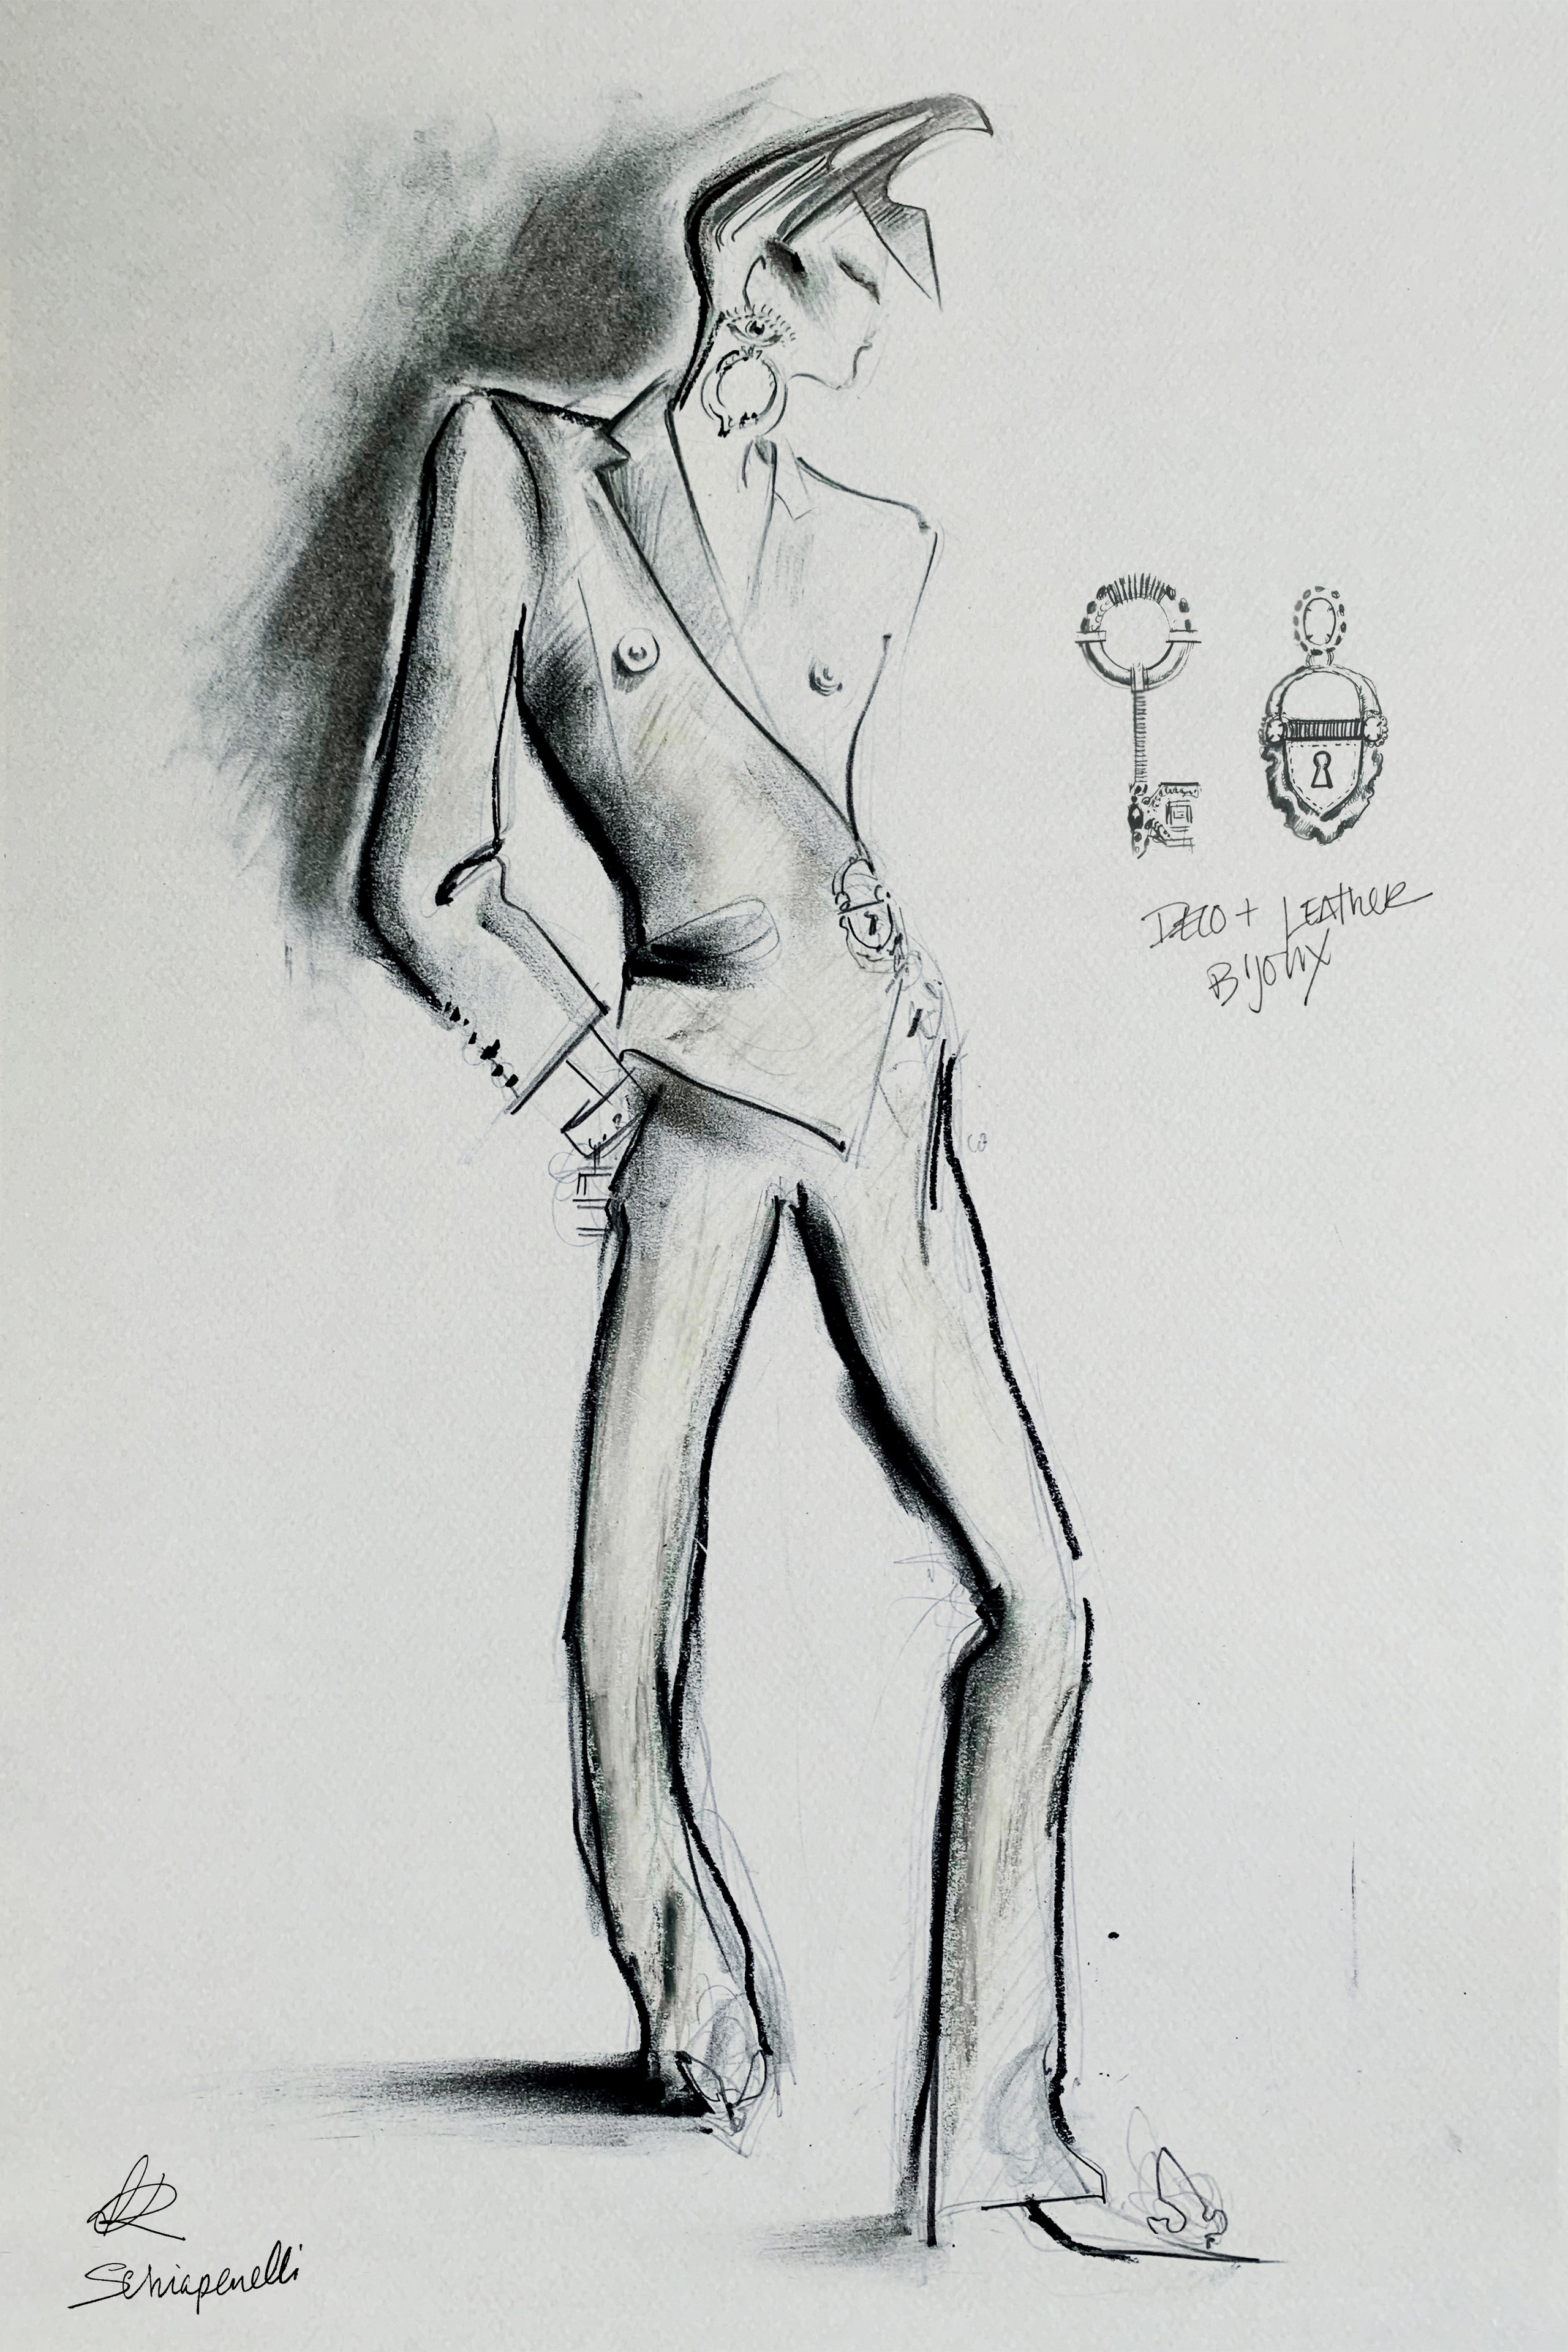 DECO + LEATHER
BIJOUX
Schiaparelli